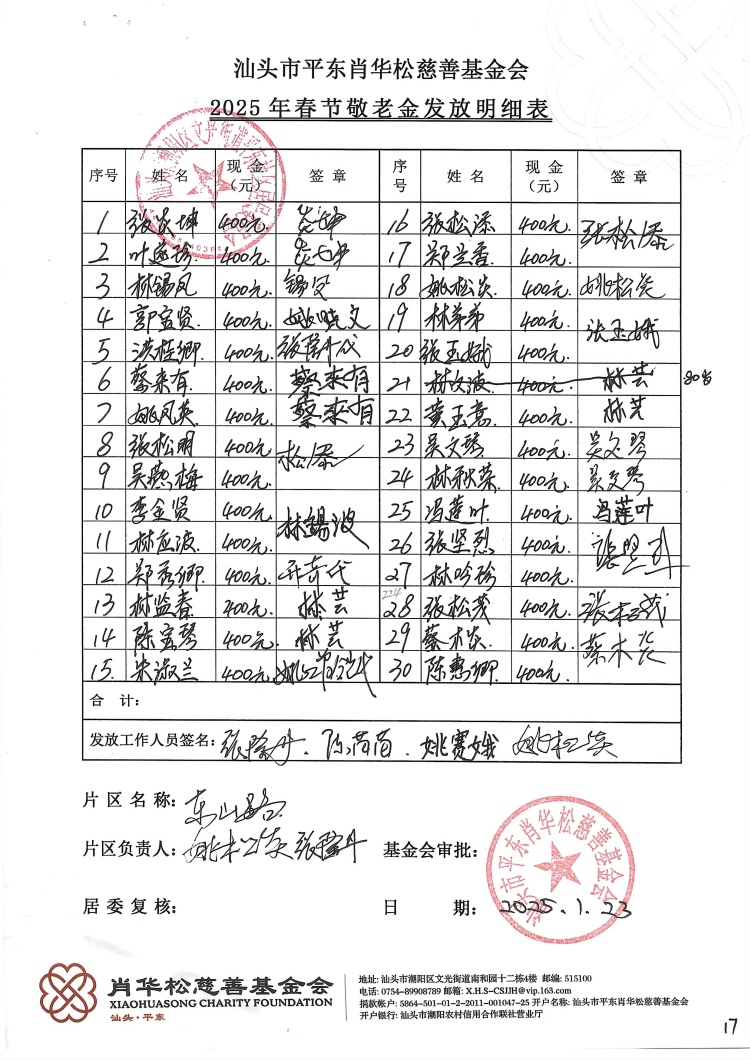 汕头市平东肖华松慈善基金会
2025年春节敬老金发放明细表
序号 姓名 现金（元） 签章 序号 姓名 现金（元） 签章
1 张炎坤 400元. 炎坤 16 张松添 400元. 张松添
2 400元. 炎坤 17 郑兰香 400元.
3 林锡凤 400元. 锡凤 18 姚松炎 400元. 姚松炎
4 郭宝贤. 400元. 姚晓文 19 林弟弟 400元.
5 洪桂卿. 400元. 20 张玉娥 400元. 张玉娥
6 蔡来有. 400元. 蔡来有 21 林文波 400元. 林芸
7 姚凤英. 400元. 蔡来有 22 黄玉意. 400元. 林芸
8 张松明 400元. 松添 23 吴文琴 400元. 吴文琴
9 吴燕梅 400元. 24 林秋荣. 400元. 吴文琴
10 李金贤 400元. 林锡波 25 冯莲叶 400元. 冯莲叶
11 林应波. 400元. 26 张坚烈 400元.
12 郑秀卿. 400元. 27 林吟珍 400元.
13 林监春 400元. 林芸 28 张松茂 400元. 张松茂
14 陈宝琴 400元. 林芸 29 蔡木炎 400元. 蔡木炎
15. 朱淑兰 400元. 30 陈惠卿. 400元.
合 计：
发放工作人员签名：张 . 姚赛娥 姚松炎
片区名称：东山路
片区负责人：姚松炎 张 基金会审批：
居委复核： 日 期：2025.1.23
汕头市平东肖华松慈善基金会
肖华松慈善基金会
XIAOHUASONG CHARITY FOUNDATION
汕头·平东
地址: 汕头市潮阳区文光街道南和园十二栋4楼 邮编: 515100
电话: 0754-89908789 邮箱: X.H.S-CSJJH@vip.163.com
捐款帐户: 5864-501-01-2-2011-001047-25 开户名称: 汕头市平东肖华松慈善基金会
开户银行: 汕头市潮阳农村信用合作联社营业厅
17